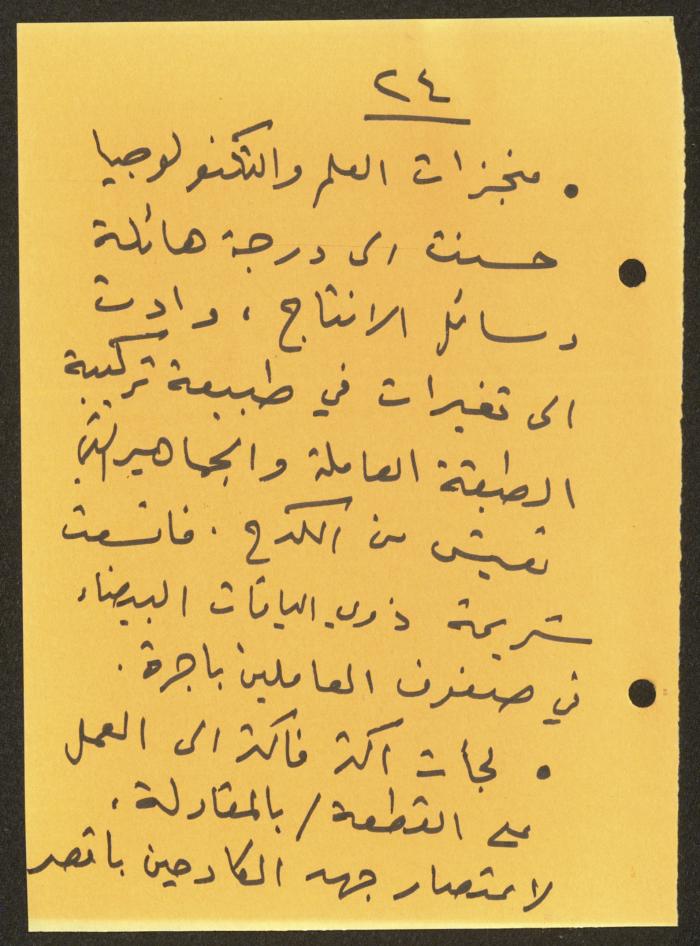 ٢٤
• منجزات العلم والتكنولوجيا
حسنت الى درجة هائلة
وسائل الانتاج ، وادت
الى تغيرات في طبيعة تركيبة
الطبقة العاملة والجماهير التي
تعيش من الكدح . فاتسعت
شريحة ذوي الياقات البيضاء
في صفوف العاملين باجرة .
• لجأت اكثر فاكثر الى العمل
على القطعة / بالمقاولة ،
لاعتصار جهد الكادحين باقصر